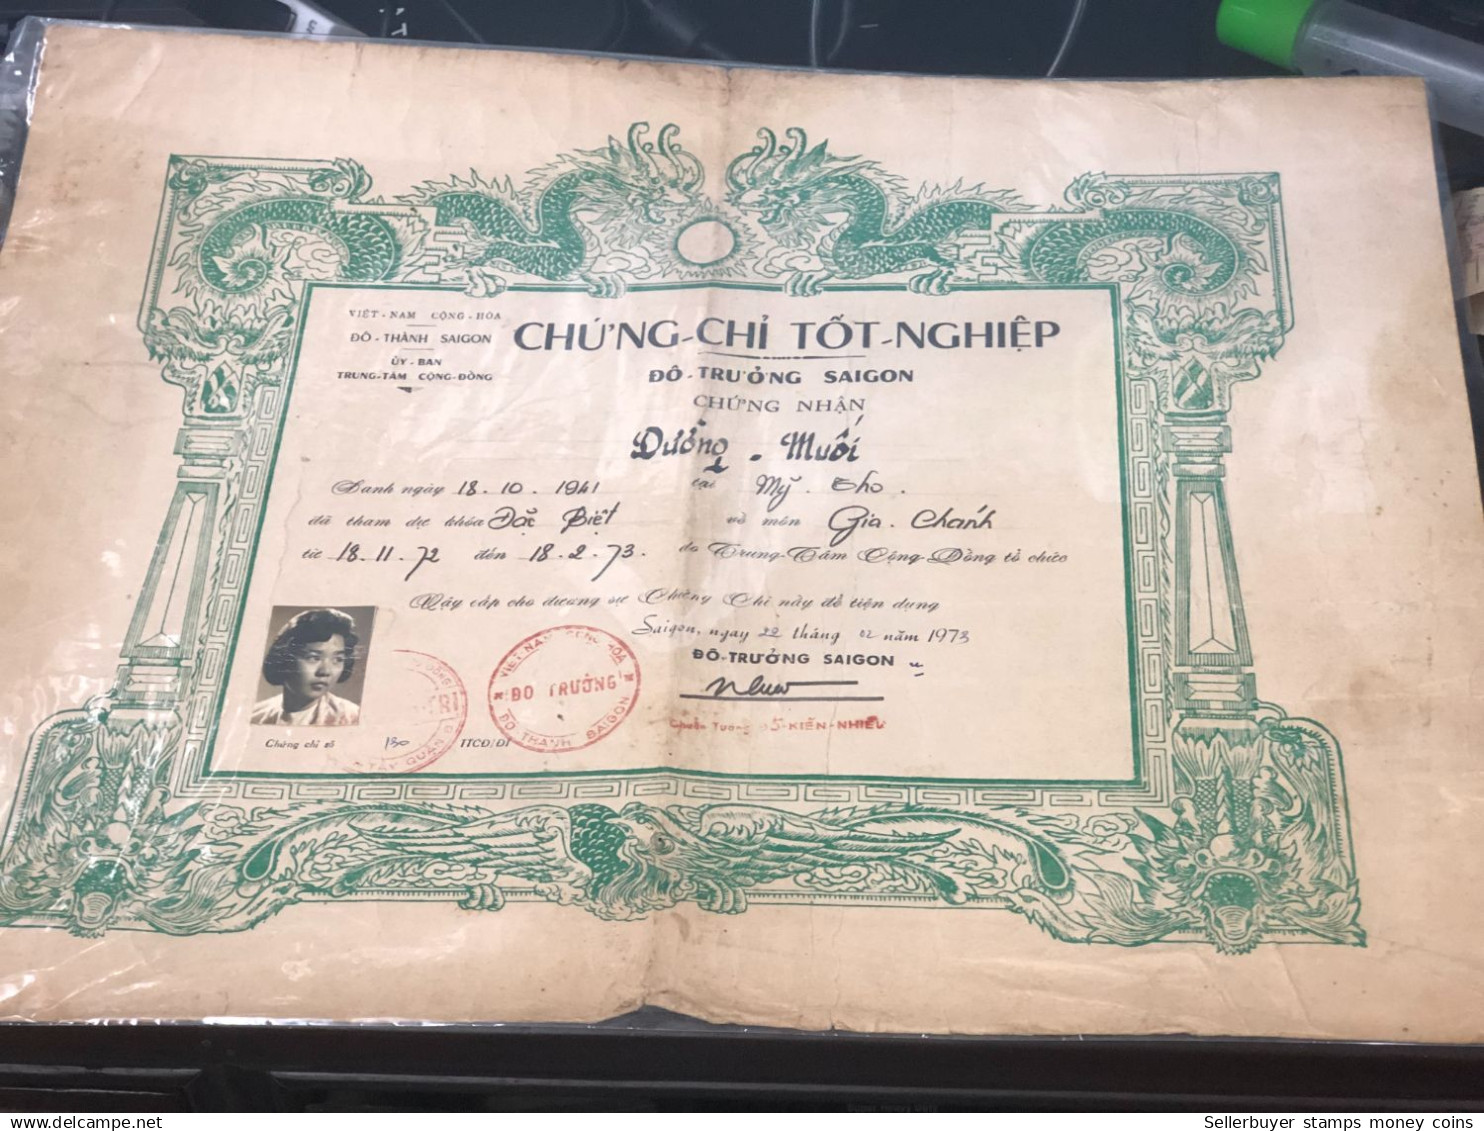 VIỆT-NAM CỘNG-HÒA
ĐÔ-THÀNH SAIGON
ỦY-BAN
TRUNG-TÂM CỘNG-ĐỒNG
CHỨNG-CHỈ TỐT-NGHIỆP
ĐÔ-TRƯỞNG SAIGON
CHỨNG NHẬN
Muối
Sanh ngày 18.10.1941 tại Mỹ.tho.
đã tham dự khóa Đặc Biệt về môn Gia.Chánh
từ 18.11.72 đến 18.2.73. do Trung-Tâm Cộng-Đồng tổ chức
Vậy cấp cho đương sự Chứng Chỉ này để tiện dụng
Saigon, ngày 22 tháng 02 năm 1973
ĐÔ-TRƯỞNG SAIGON
VIỆT NAM CỘNG HÒA
ĐÔ TRƯỞNG
ĐÔ THÀNH SAIGON
Chuẩn Tướng ĐỖ-KIẾN-NHIỄU
Chứng chỉ số 130 TTCĐ/ĐT
Sellerbuyer stamps money coins